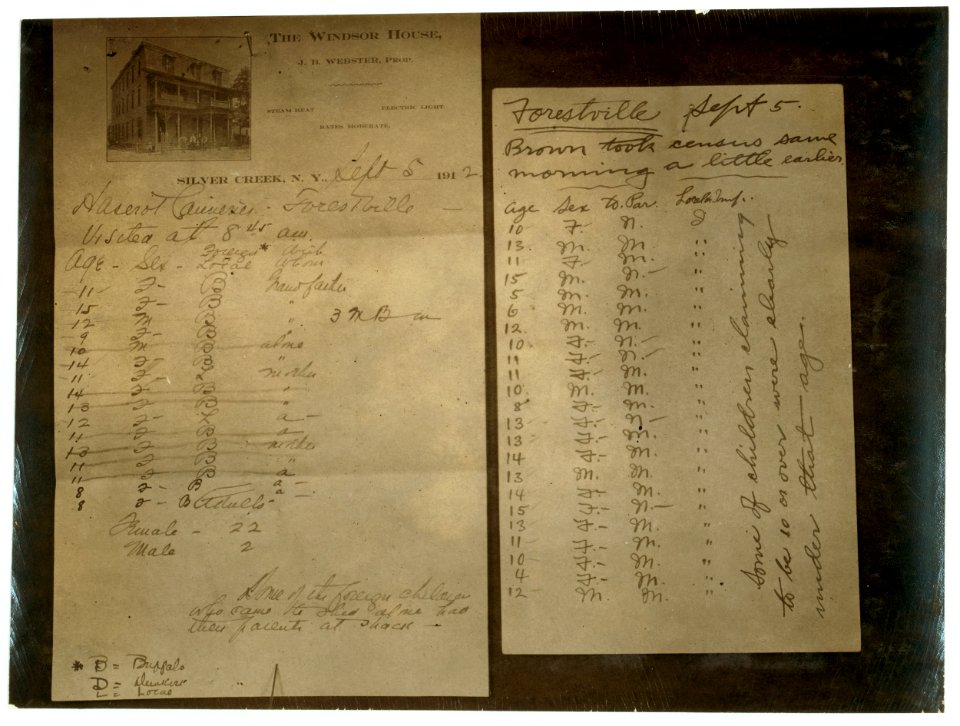 THE WINDSOR HOUSE,
J. B. WEBSTER, PROP.
STEAM HEAT ELECTRIC LIGHT
RATES MODERATE,
SILVER CREEK, N. Y., Sept 5 1912
Haserot Cannery - Forestville -
Visited at 8 45 am.
Foreign * With
Age - Sex - Local whom
11 Grandfather
15 " 3 M B
12
9 "
10 M alone
14 "
11 mother
14 "
13 "
12 a -
11 a -
13 mother
13 "
11 a
8 B a -
8 B a -
Adults -
Female - 22
Male 2
Some of the foreign children
who came to the shed alone had
their parents at shack -
* B = Buffalo
D = Dunkirk
L = Local
Forestville Sept 5.
Brown took census same
morning a little earlier.
Age Sex to. Par. Loc. or Imp.
10 F. N.
13. M. M. "
11 F. N. "
15 M. M. "
5 M. M. "
6 M. M. "
12 M. M. "
10 F. N. "
11 F. M. "
10 M. M. "
8 F. M. "
13 F. "
13 F. M. "
14 F. M. "
13 M. M. "
14 F. M. "
15 F. N. "
13 F. M. "
11 F. M. "
10 F. M. "
4 F. M. "
12 M. M. "
Some of children claiming
to be 10 or over were clearly
under that age.